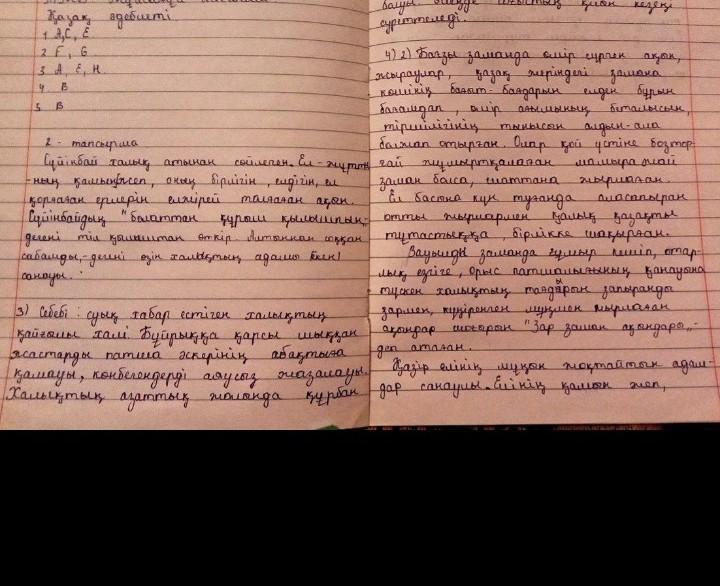 Қазақ әдебиеті
1 A,C, E
2 F, G
3 A, E, H.
4 B
5 B
2 - тапсырма
Сүйінбай халық атынан сөйлеген. Ел-жұртты
-ның қамын жеп, оның бірлігін, елдігін, ел
қорғаған ерлерін елжірей толғаған ақын.
Сүйінбайдың "болаттан құрыш қылышпын,,
дегені тіл қылыштан өткір. Алтыннан соққан
сабалды,-дегені өзін халықтың адамы екен
санауы.
3) Себебі: суық хабар естіген халықтың
қайғылы халі. Бұйрыққа қарсы шыққан
жастарды патша әскерінің абақтыға
қамауы, көнбегендерді аяусыз жазалауы.
Халықтың азаттық жолында құрбан
суреттеледі.
4) 2) Бағзы заманда өмір сүрген ақын,
жыраулар, қазақ жеріндегі замана
көшінің бағыт-бағдарын елден бұрын
бағамдап, өмір ағымының біталысын,
тіршілігінің тынысын алдын-ала
болжап отырған. Олар қой үстіне бозтор-
ғай жұмыртқалаған мамыражай
заман болса, шаттана жырлаған.
Ел басына күн туғанда аласапыран
отты жырлармен қалық қазақты
тұтастыққа, бірлікке шақырған.
Бауынды заманда ғұмыр кешіп, отар-
лық езгіге, Орыс патшалығының қанауына
түскен халықтың тағдырын запыранды
зармен, күңіренген мұңмен жырлаған
ақындар шоғырын "Зар заман ақындары,,-
деп атаған.
Қазір елінің мұңын жоқтайтын адам-
дар санаулы. Елінің қамын жеп,